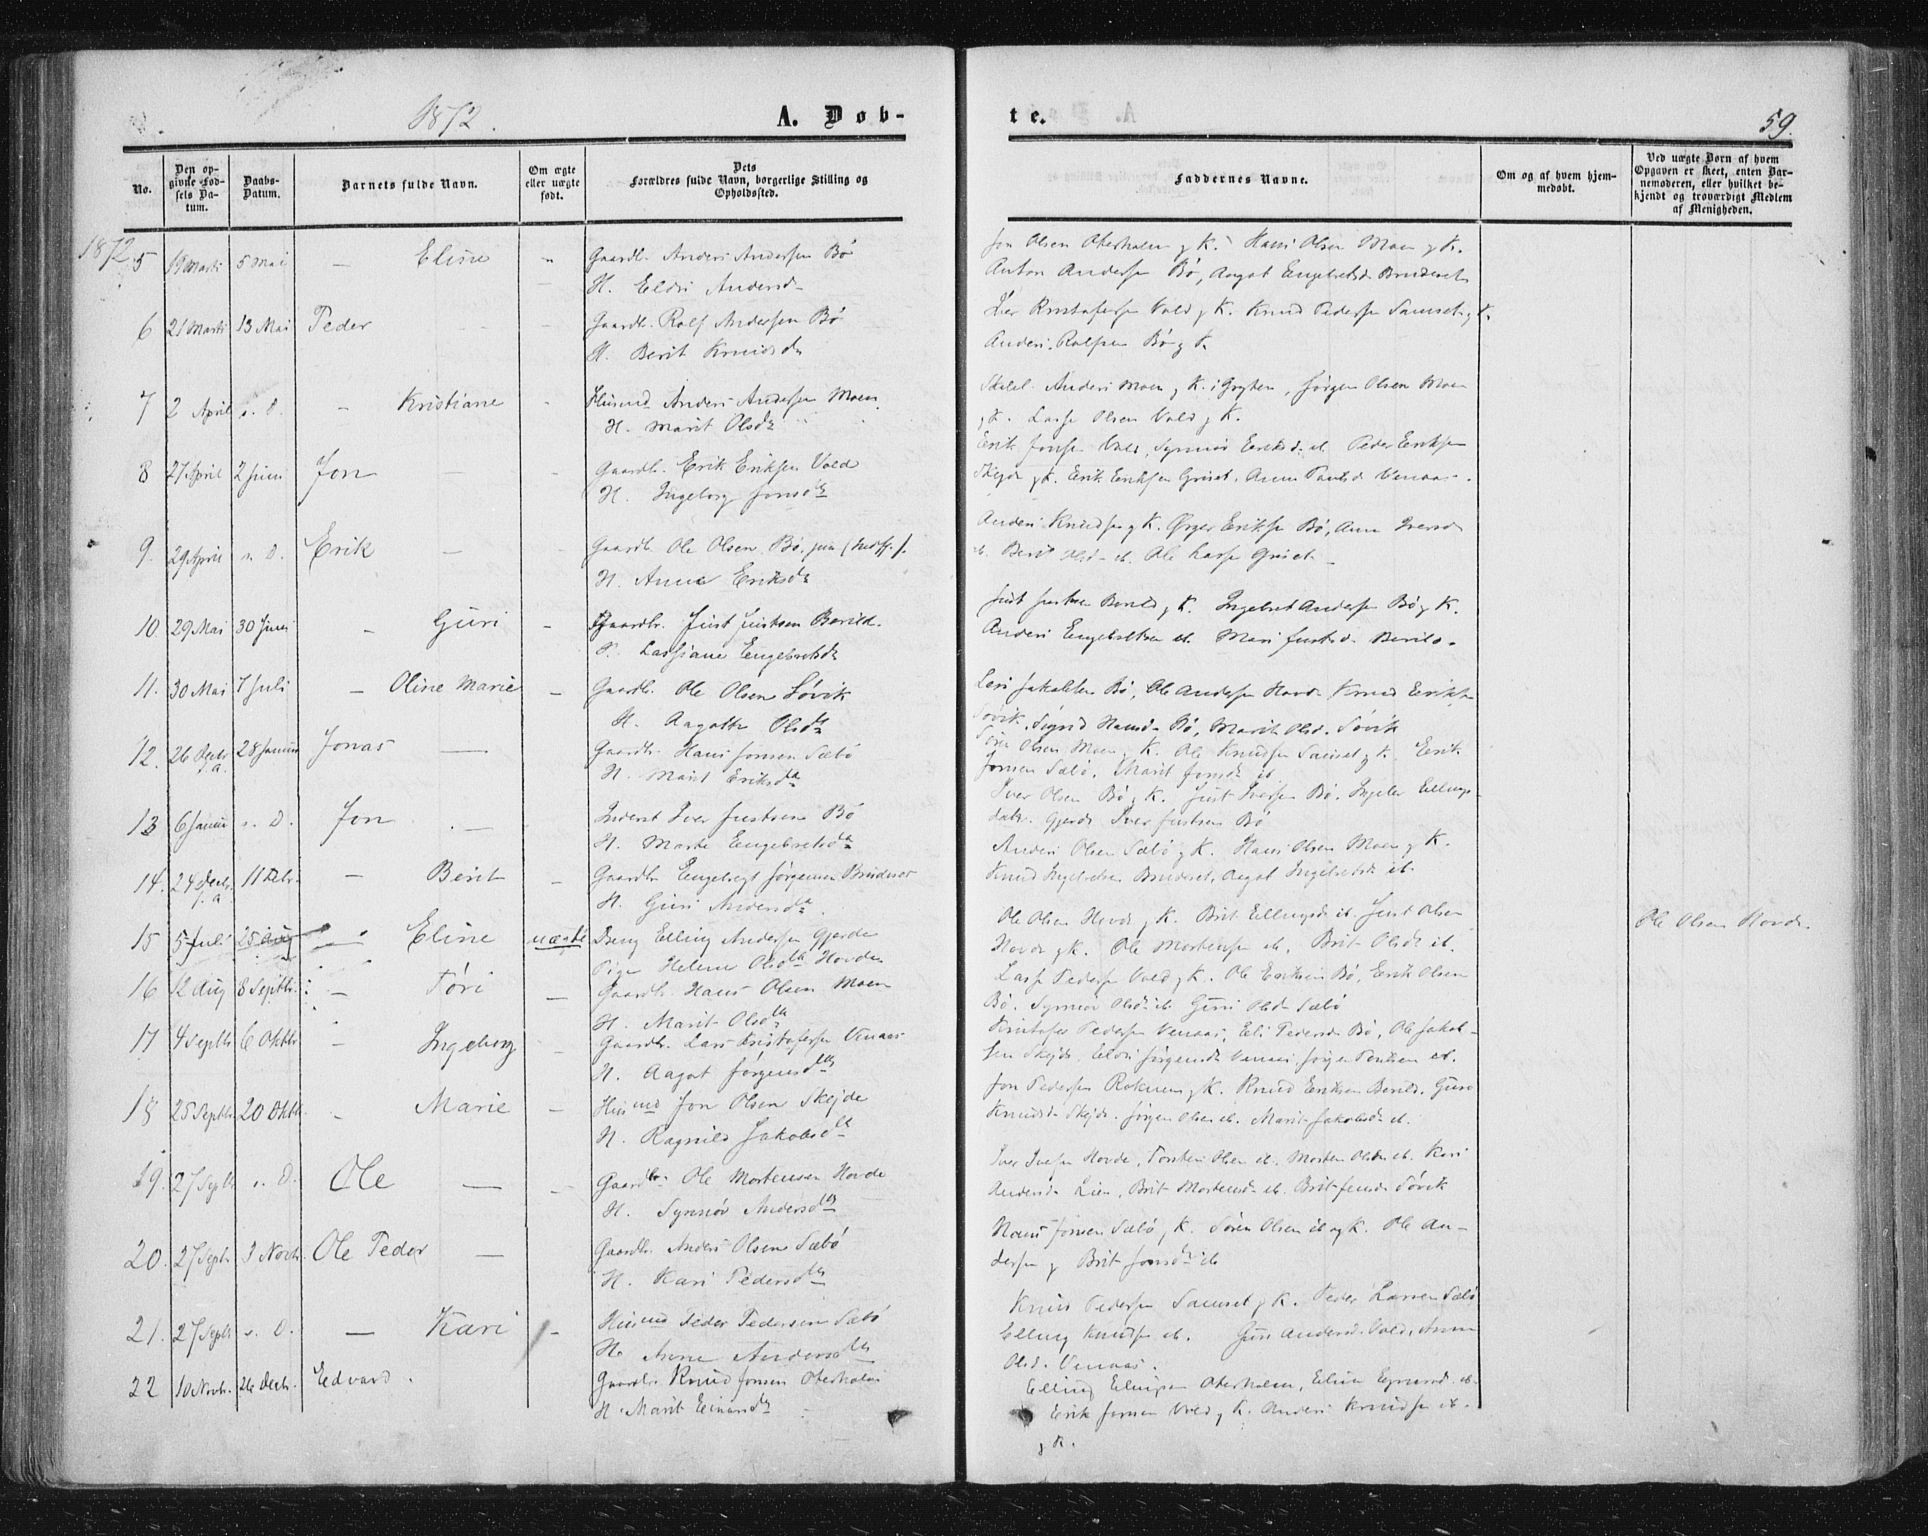 1872.
A. Døb-
te.
59.
No.
Den op-
givne Fød-
sels Da-
tum.
Daabs-
Datum.
Barnets fulde Navn.
Om ægte
eller uægte
født.
Dets
Forældres fulde Navn, borgerlige Stilling og
Opholdssted.
Faddernes Navne.
Om og af hvem hjem-
medøbt.
Ved uægte Børn af hvem
Opgaven er skeet, enten Bar-
nemoderen, eller hvilket be-
kjendt og troværdigt Medlem
af Menigheden.
1872
5 19 Marti 5 Mai — Eline
Gaardbr. Anders Andersen Bø
H. Eldri Andersd
Jon Olsen Oterholm g K. Hans Olsen Moen g K.
Anton Andersen Bø, Aagot Engebretsd Bruderset
6 21 Marti 13 Mai Peder
Gaardbr. Rolf Andersen Bø
H. Berit Knudsd
Iver Kristofersen Vold g K. Knud Pedersen Samset g K.
Anders Rolfsen Bø g K
7 2 April s. D. — Kristiane
Husmd Anders Andersen Moen
H. Marit Olsdr
Anders Moen g K. i Grytten, Jørgen Olsen Moen
g K. Lasse Olsen Vold g K.
8 27 April 2 Juni Jon —
Gaardbr. Erik Eriksen Vold
H. Ingeborg Jonsdtr
Erik Jonsen Vold, Synnøv Eriksd ib. Peder Eriksen
Skejde g K. Erik Eriksen Griset. Anne Paulsd Venaas.
9. 29 April s. D. Erik —
Gaardbr. Ole Olsen Bø jun
H. Anne Eriksdr
Anders Knudsen g K. Ørger Eriksen Bø, Anne Iversd
ib. Berit Olsd ib. Ole Larsen Griset
10 29 Mai 30 Juni — Guri —
Gaardbr. Just Justsen Berild.
H. Lassiane Engebretsdr
Just Justsen Berild g K. Ingebret Andersen Bø g K.
Anders Engebretsen ib. Mari Justsd. Berild.
11. 30 Mai 7 Juli — Oline Marie —
Gaardbr. Ole Olsen Søvik
H. Aagothe Olsdtr
Lars Jakobsen Bø, Ole Andersen Hovde, Knud Eriksen
Søvik, Sigrid Hansd Bø, Marit Olsd. Søvik
12. 26 Decbr f. a. 28 Januar Jonas —
Gaardbr. Hans Jonsen Sæbø
H. Marit Eriksdtr
Sören Olsen Moen g K. Ole Knudsen Samset g K. Erik
Jonsen Sæbø. Marit Jonsdr ib
13 6 Januar s. D. Jon —
Inderst Iver Justsen Bø
H. Marte Engebretsdtr
Iver Olsen Bø g K. Just Iversen Bø. Ingebr Ellings-
datr. Gjerde Iver Justsen Bø
14. 24 Decbr. f. a 11 Febr. — Berit —
Gaardbr Engebregt Jørgensen Bruderset
H. Guri Andersdr
Anders Olsen Sæbø g K. Hans Olsen Moen g K.
Knud Ingebretsen Bruderset, Aagot Ingebretsd ib.
15 5 Juli 25 Aug — Eline uægte
Dreng Elling Andersen Gjerde
Pige Helene Olsdtr Hovde
Ole Olsen Hovde g K. Brit Ellingsd ib. Just Olsen
Hovde g K. Ole Mortensen ib. Brit Olsdr ib.
Ole Olsen Hovde.
16 12 Aug 8 Septbr. — Tøri —
Gaardbr. Hans Olsen Moen
H. Marit Olsdtr
Lasse Pedersen Vold g K. Ole Eriksen Bø, Erik Olsen
Bø. Synnøv Olsd ib. Guri Olsd Sæbø
17 4 Septbr 6 Oktbr — Ingeborg —
Gaardbr. Lars Kristofersen Venaas
H. Aagot Jørgensdtr
Kristofer Pedersen Venaas, Eli Pedersd Bø, Ole Jakob-
sen Skejde, Eldri Jørgensd Venaas, Jørgen ib.
18 25 Septbr 20 Oktbr. — Marie —
Husmd Jon Olsen Skejde
H. Ragnild Jakobsdtr
Jon Pedersen Roknem g K. Knud Eriksen Berild. Guro
Knudsd Skejde. Jørgen Olsen ib. Marit Jakobsd ib.
19. 27 Septbr s. D. Ole —
Gaardbr. Ole Mortensen Hovde
H. Synnøv Andersdtr
Iver Iversen Hovde, Torsten Olsen ib. Morten Olsen ib. Kari
Andersd Lien, Brit Mortensd ib. Brit Jensd Søvik
20. 27 Septbr 3 Novbr. Ole Peder —
Gaardbr. Anders Olsen Sæbø
H. Kari Pedersdtr
Hans Jonsen Sæbø g K. Sören Olsen ib g K. Ole An-
dersen g Brit Jonsdtr ib
21. 27 Septbr s. D. — Kari —
Husmd Peder Pedersen Sæbø
H. Anne Andersdtr
Knud Pedersen Samset g K. Peder Larsen Sæbø
Elling Knudsen ib. Guri Andersd. Vold, Anne
Olsd. Venaas.
22 10 Novbr. 26 Decbr. Edvard.
Gaardbr. Knud Jonsen Oterholm
H. Marit Einarsdtr
Elling Oterholm, ib.
Erik Jonsen Vold g K. Anders Knudsen ib.
g K.